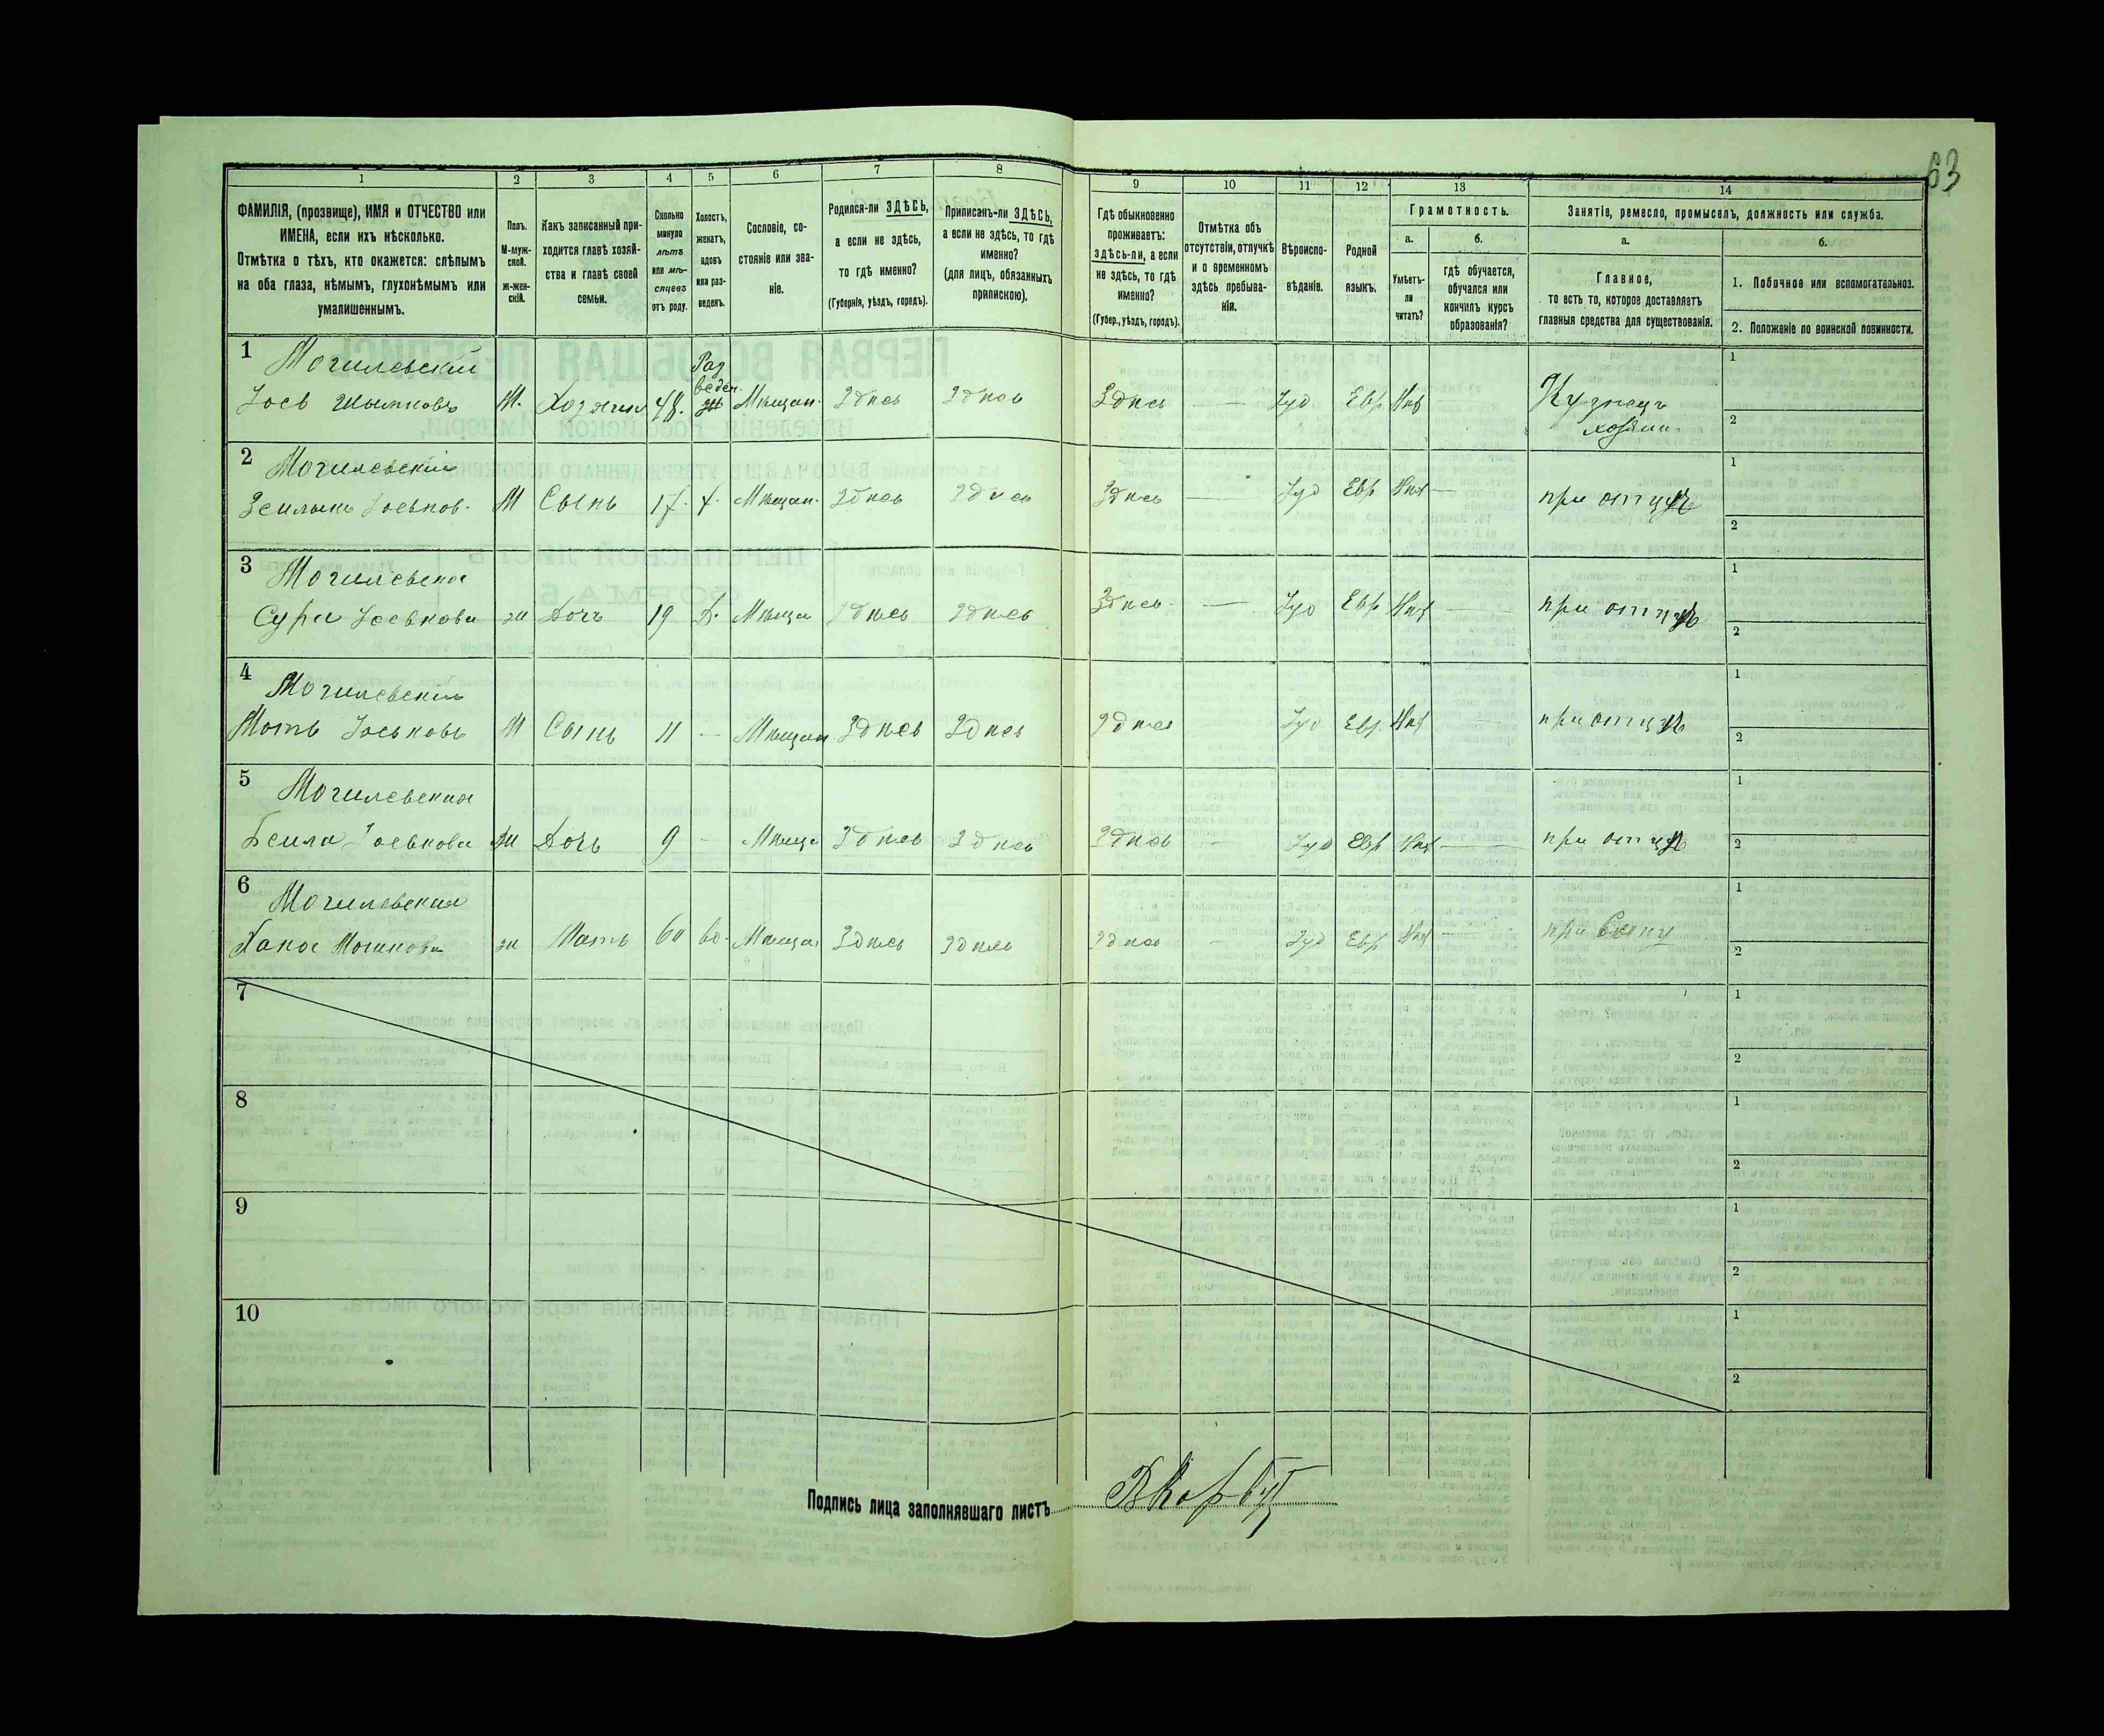 63
1 2 3 4 5 6 7 8 9 10 11 12 13 14
ФАМИЛІЯ, (прозвище), ИМЯ и ОТЧЕСТВО или
ИМЕНА, если ихъ нѣсколько.
Отмѣтка о тѣхъ, кто окажется: слѣпымъ
на оба глаза, нѣмымъ, глухонѣмымъ или
умалишеннымъ.
Полъ.
М-муж-
ской.
ж-жен-
скій.
Какъ записанный при-
ходится главѣ хозяй-
ства и главѣ своей
семьи.
Сколько
минуло
лѣтъ
или мѣ-
сяцевъ
отъ роду.
Холостъ,
женатъ,
вдовъ
или раз-
веденъ.
Сословіе, со-
стояніе или зва-
ніе.
Родился-ли ЗДѢСЬ,
а если не здѣсь,
то гдѣ именно?
(Губернія, уѣздъ, городъ).
Приписанъ-ли ЗДѢСЬ,
а если не здѣсь, то гдѣ
именно?
(для лицъ, обязанныхъ
припискою).
Гдѣ обыкновенно
проживаетъ:
здѣсь-ли, а если
не здѣсь, то гдѣ
именно?
(Губер., уѣздъ, городъ).
Отмѣтка объ
отсутствіи, отлучкѣ
и о временномъ
здѣсь пребыва-
ніи.
Вѣроиспо-
вѣданіе.
Родной
языкъ.
Грамотность.
а.
Умѣетъ-
ли
читать?
б.
гдѣ обучается,
обучался или
кончилъ курсъ
образованія?
Занятіе, ремесло, промыселъ, должность или служба.
а.
Главное,
то есть то, которое доставляетъ
главныя средства для существованія.
б.
1. Побочное или вспомогательное.
2. Положеніе по воинской повинности.
1 Могилевскій Раз 1
веден.
Іось М. Хозяинъ 48. Мѣщан. Здѣсь Здѣсь Здѣсь — Іуд Евр Нѣт — Кузнецъ
хозяин. 2
2 Могилевскій 1
Зейлыкъ Іоськов. М Сынъ 17. Х. Мѣщан. Здѣсь Здѣсь Здѣсь — Іуд Евр Нѣт — при отцѣ
2
3 Могилевская 1
Сура Іоськова ж Дочь 19 Д. Мѣща Здѣсь Здѣсь Здѣсь — Іуд Евр Нѣт — при отцѣ
2
4 Могилевскій 1
Іоськовъ М Сынъ 11 — Мѣщан Здѣсь Здѣсь Здѣсь — Іуд Евр Нѣт — при отцѣ
2
5 Могилевская 1
Бейла Іоськова ж Дочь 9 — Мѣща Здѣсь Здѣсь Здѣсь — Іуд Евр Нѣт — при отцѣ
2
6 Могилевская 1
Хана Мошкова ж Мать 60 вд. Мѣщан Здѣсь Здѣсь Здѣсь — Іуд Евр Нѣт — при Сыну
2
7 1
2
8 1
2
9 1
2
10 1
2
Подпись лица заполнявшаго листъ